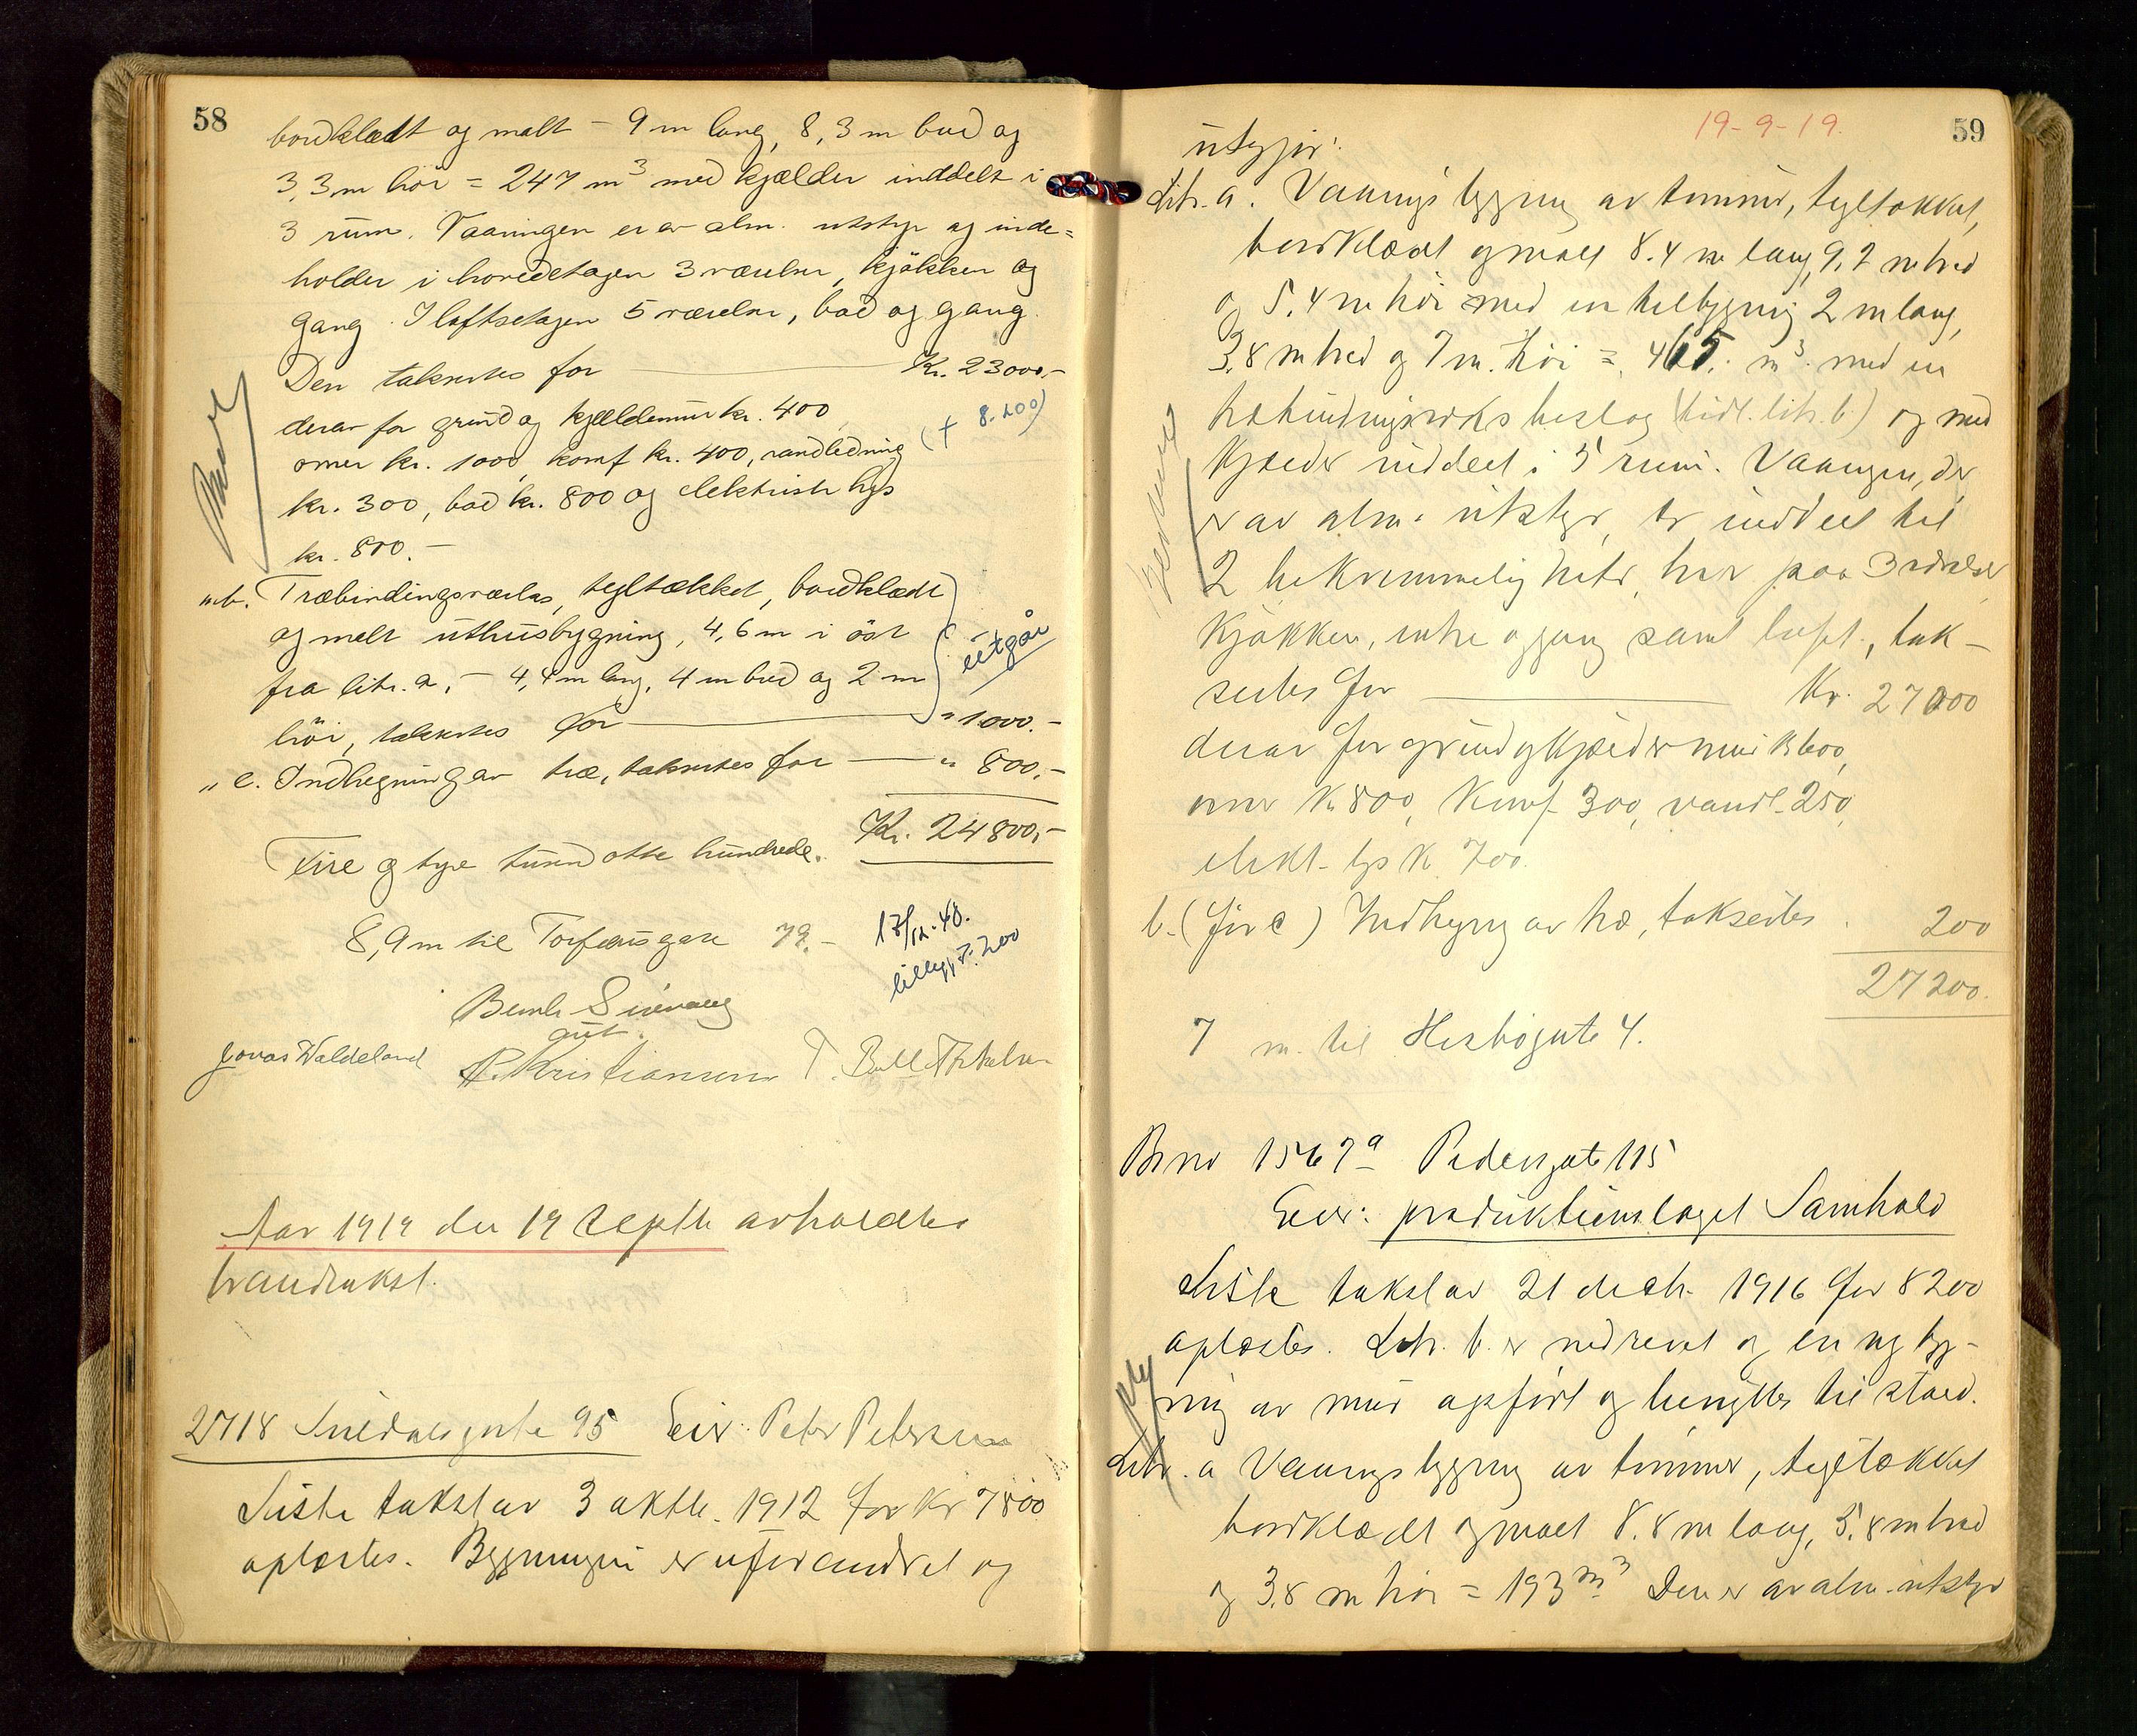 58
bordklædt og malt – 9 m lang, 8,3 m bred og
3,3 m höi = 247 m³ med kjælder inddelt i
3 rum. Vaaningen er av alm. utstyr og inde=
holder i hovedetagen 3 værelser, kjökken og
gang. I loftsetagen 5 værelser, bad og gang.
Den takseres for Kr. 23000,-
derav for grund og kjældermur kr. 400,
(+ 8.200)
ovner kr. 1000, komf kr. 400, vandledning
kr. 300, bad kr. 800 og elektrisk lys
kr. 800.-
"b. Træbindingsverks, tegltækket, bordklædt
og malt uthusbygning, 4,6 m i öst
utgår
fra litr. a, – 4,4 m lang, 4 m bred og 2 m
höi, takseres for " 1000.-
" c. Indhegning av træ, takseres for " 800.-
Kr. 24800,-
Fire og tyve tusind otte hundrede.
8,9 m til Torfæusgate 79.-
17/12-40.
tillegg 8.200
Jonas Waldeland
P. Kristiansen
Aar 1919 den 19 Septb avholdtes
brandtakst.
2718 Suldalsgate 95 Eier: Peter Petersen
Siste takst av 3 oktb. 1912 for Kr 7800
oplæstes. Bygningen er uforandret og
19-9-19.
59
utgjör:
Litr. a. Vaaningsbygning av tømmer, tegltækket,
bordklædt og malt 8.4 m lang, 9,2 m bred
og 5,4 m höi med en tilbygning 2 m lang,
3,8 m bred og 7 m. höi = 465. m³. med en
træbindingsverks beslag (tidl. litr. b.) og med
kjælder inddelt i 5 rum. Vaaningen, der
er av alm. utstyr, er inddelt til
2 bekvemmeligheter, hver paa 3 værelser
kjökken, entre og gang samt loft, tak–
seres for Kr. 27000
derav for grund og kjældermur K 600,
ovner K 800, Komf 300, vandl. 250,
elekt. lys K 700.
b. (för c) Indhegng av træ, takseres 200
27200.
7 m. til Hesbögate 4.
Br no 1567ª Pedersgate 115
Eier: produktionslaget Samhold
Siste takst av 21 decbr. 1916 for 8200
oplæstes. Litr. b. er nedrevet og en ny byg–
ning av mur opfört og benyttes til stald.
Litr. a Vaaningsbygning av tømmer, tegltækket
bordklædt og malt 8.8 m lang, 5,8 m bred
og 3,8 m höi = 193 m³ Den er av alm. utstyr